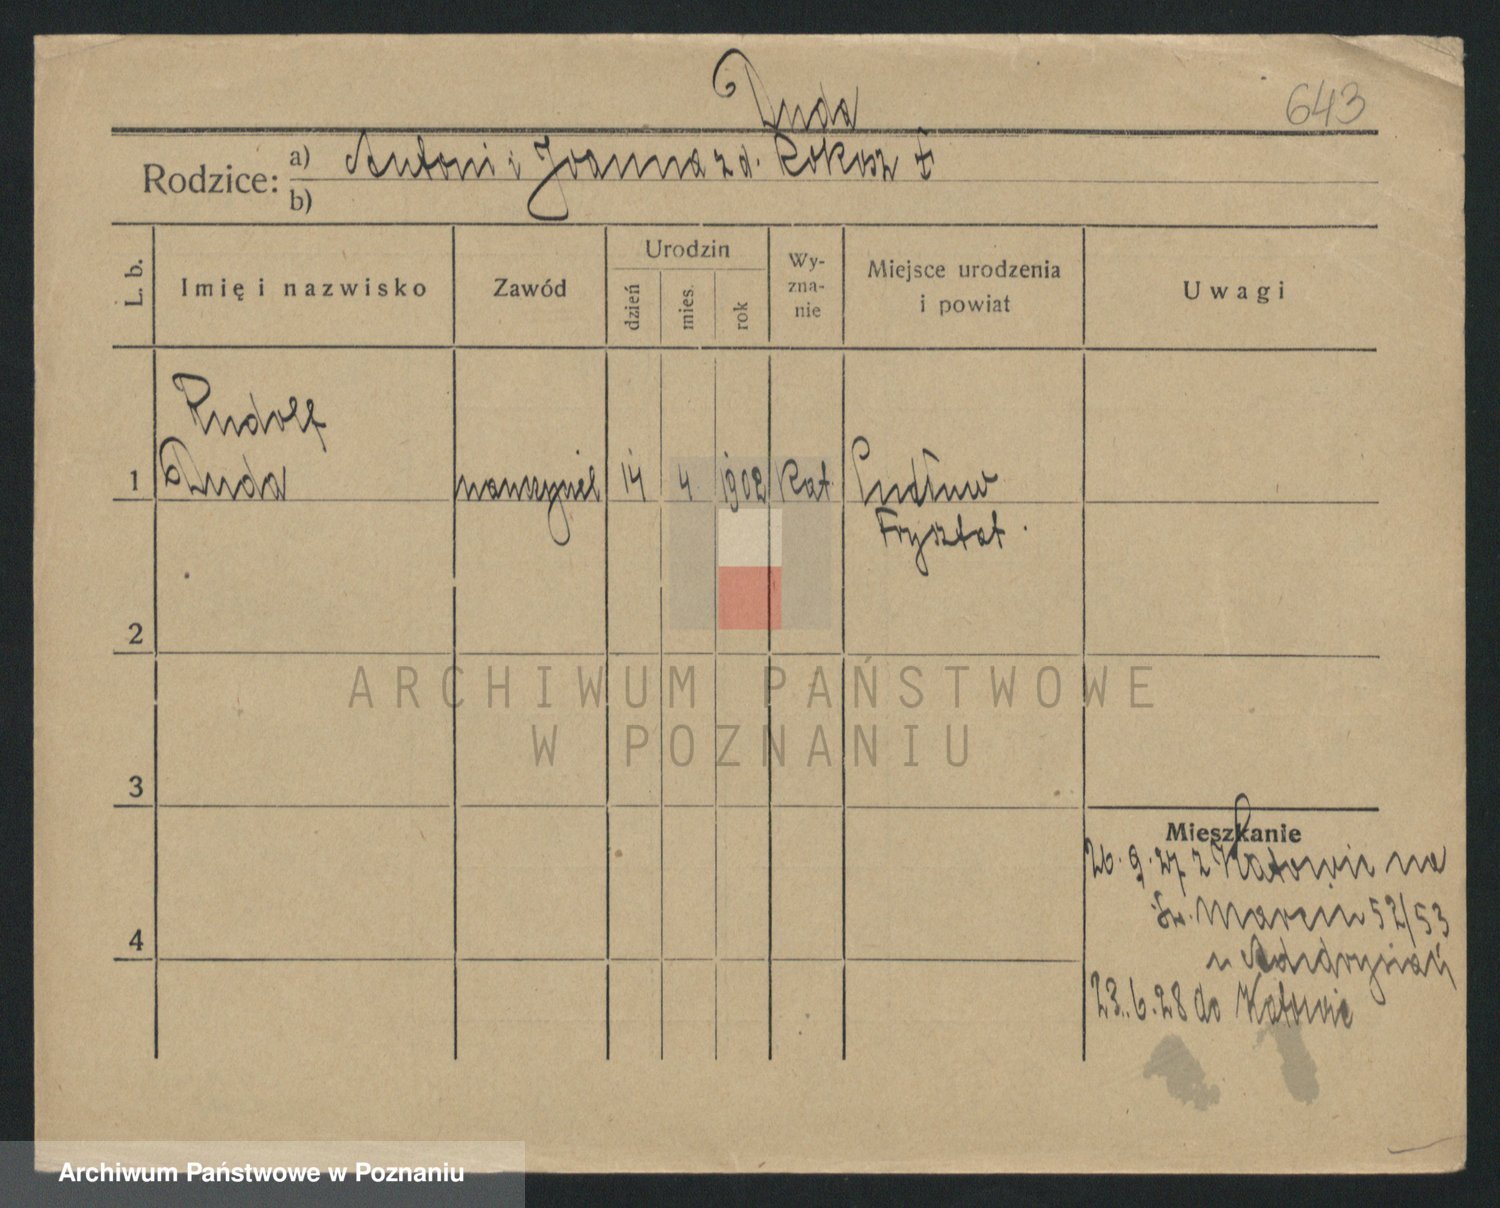 Duda
643
Rodzice: a) Antoni i Joanna z d. Kokosz
b)
L. b.
Imię i nazwisko
Zawód
Urodzin
dzień
mies.
rok
Wy-
zna-
nie
Miejsce urodzenia
i powiat
Uwagi
Rudolf
1 Duda nauczyciel 14 4 1902 Kat.
Frysztat.
2
3
4
Mieszkanie
26.9.27 z Katowic na
św. Marcin 52/53
u
23.6.28 do Katowic
ARCHIWUM PAŃSTWOWE
W POZNANIU
Archiwum Państwowe w Poznaniu